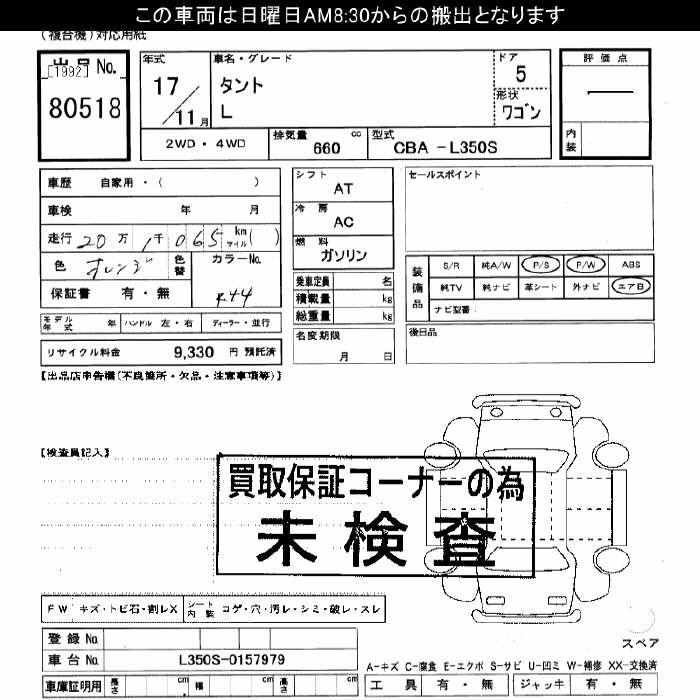 この車両は日曜日AM8:30からの搬出となります
(複合機)対応用紙
出品 No.
[1992]
80518
年式
17/11月
車名・グレード
タント
L
ドア
5
形状
ワゴン
評価点
―
内装
2WD・4WD
排気量 cc
660
型式
CBA -L350S
車歴 自家用・( )
車検 年 月
走行 20万 1千 065 km マイル( )
色 オレンジ 色替 カラーNo.
R44
保証書 有・無
モデル年式 年 ハンドル 左・右 ディーラー・並行
リサイクル料金 9,330 円 預託済
シフト
AT
冷房
AC
燃料
ガソリン
乗車定員 名
積載量 kg
総重量 kg
名変期限
月 日
セールスポイント
装備品
S/R 純A/W P/S P/W ABS
純TV 純ナビ 革シート 外ナビ エアB
ナビ型番
後日品
【出品店申告欄(不良箇所・欠品・注意事項等)】
【検査員記入】
買取保証コーナーの為
未検査
FW キズ・トビ石・割レX シート内装 コゲ・穴・汚レ・シミ・破レ・スレ
登録 No.
車台 No. L350S-0157979
車庫証明用 長さ cm 幅 cm 高さ cm
スペア
A-キズ C-腐食 E-エクボ S-サビ U-凹ミ W-補修 XX-交換済
工具 有・無 ジャッキ 有・無